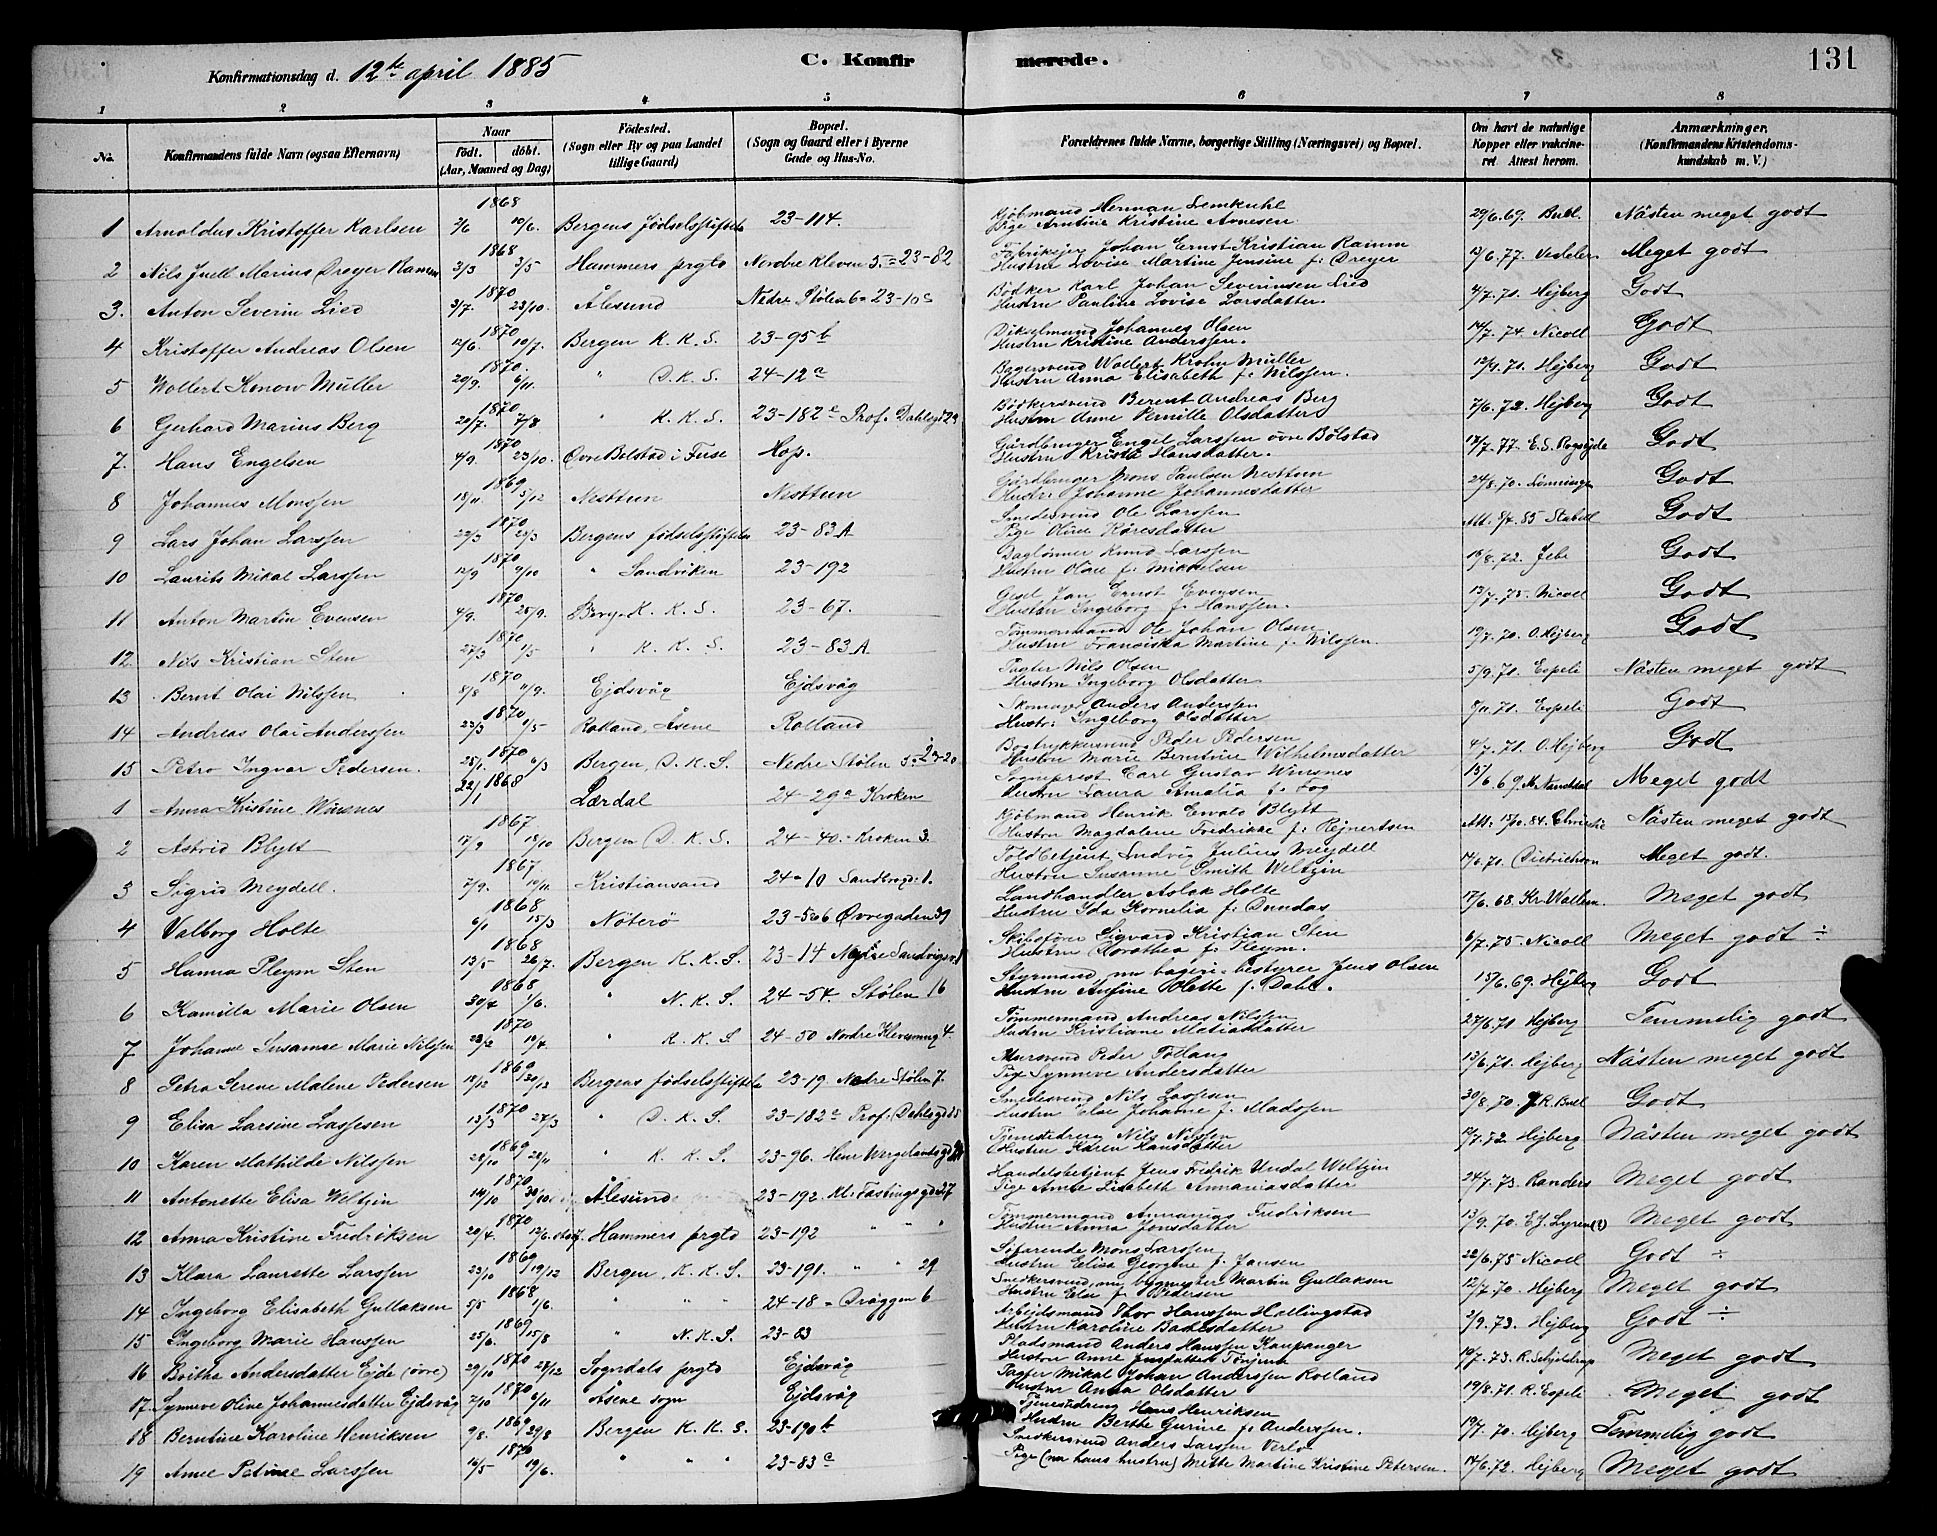 Konfirmationsdag d. 12te april 1885 C. Konfirmerede. 131
1 2 3 4 5 6 7 8
No. Konfirmandens fulde Navn (ogsaa Efternavn) Naar født. døbt. (Aar, Maaned og Dag) Fødested. (Sogn eller By og paa Landet tillige Gaard) Bopæl. (Sogn og Gaard eller i Byerne Gade og Hus-No. Forældrenes fulde Navne, borgerlige Stilling (Næringsvei) og Bopæl. Om havt de naturlige Kopper eller vakcineret. Attest herom. Anmærkninger. (Konfirmandens Kristendomskundskab m. V.)
1868
1 Arnoldus Kristoffer Karlsen 2/6 10/6. Bergens fødselsstiftelse 23-114. Kjöbmand Herman Lemkuhl
Pige Arntine Kristine Arnesen. 29/6.69. Bull. Nästen meget godt
1868
2 Nils Juell Marius Dreyer Ramm 3/3 3/5 Hammers prgld Nordre Kleven 5 = 23-82 Fabrikejer Johan Ernst Kristian Ramm
Hustru Lovise Martine Jensine f: Dreyer 12/6.77. Meget godt
1870
3. Anton Severin Lied 3/7. 23/10. Ålesund Nedre Stölen 6 = 23-10 Bödker Karl Johan Severinsen Lied
Hustru Pauline Lovise Larsdatter. 4/7.71. Hejberg Godt
1870
4 Kristoffer Andreas Olsen 12/6. 10/7. Bergen K. K. S. 23-95 b Johannes Olsen
Hustru Kristine Anderssen. 14/7.74. Nicoll Godt
1870.
5 Wollert Konow Müller 20/9. 6/11. " D. K. S. 24-12a Bagersvend Wollert Krohn Müller
Hustru Anna Elisabeth f. Nilssen. 12/9.71. Hejberg Godt
1870
6 Gerhard Marius Berg 29/7. 7/8 " K. K. S. 23-182 Prof. Dahlsgd 29 Bödkersvend Berent Andreas Berg
Hustru Anne Pernille Olsdatter 7/6.72. Hejberg Godt
1870
7. Hans Engelsen 4/9. 23/10. Övre Bolstad i Fuse Hop. Gårdbruger Engel Larssen övre Bölstad
Hustru Krista Hansdatter. 17/7.77. E. S. Godt
1869
8 Johannes Monssen 18/11. 5/12 Nesttun Nesttun Gårdbruger Mons Paulsen Nesttun
Hustru Johanne Johannesdatter 24/8.70. Lönningen Godt
1870
9 Lars Johan Larssen 22/3 25/3 Bergens fødselsstiftelse 23-83A Smedesvend Ole Larssen
Pige Oline Karesdatter Att. 8/4.85 Stabell Godt
1870
10 Laurits Mikal Larssen 12/9 9/10 " Sandviken 23-192 Daglönner Knud Larssen
Hustru Oline f. Mikkelsen 16/8.72. Jebe Godt
1870
11 Anton Martin Evensen 4/9. 25/9. Berg. K. K. S. 23-67. Gesel Jan Ernst Evensen
Hustru Ingeborg f. Hanssen. 13/7.75. Nicoll Godt
1870
12. Nils Kristian Sten 27/3 1/5 " K. K. S. 23-83A Tömmermand Ole Johan Olsen
Hustru Fransiska Martine f. Nilssen. 19/7.70. O. Hejberg Godt
1870
13 Bernt Olai Nilssen 8/8 11/9. Ejdsvåg Ejdsvåg Pagter Nils Olsen
Hustru Ingeborg Olsdatter 5/9.71. Espeli Nästen meget godt
1870
14 Andreas Olai Anderssen 23/3 1/5 Rolland, Åsene Rolland Skomager Anders Anderssen
Hustr: Ingeborg Olsdatter 8/11.71. Espeli Godt
1870
15 Petro Ingvar Pedersen. 25/1. 6/3 Bergen, D. K. S. Nedre Stölen 5 = 24-20 Bogtrykkersvend Peder Pedersen
Hustru Marie Berntine Wilhelmsdatter 4/7.71. O. Hejberg God
1868
1 Anna Kristine Wiesnes 22/1 Lærdal 24-29a Kroken Sogneprest Carl Gustav Wiesnes
Hustru Laura Amalia f. Fog 15/6.69. Meget godt
1867
2 Astrid Blytt 17/9 18/10 Bergen D. K. S. 24-40 = Kroken 3. Kjöbmand Henrik Ewald Blytt
Hustru Magdalene Fredrikke f. Rejnertsen Att. 15/10.84. Christie Nästen meget godt
1867
3 Sigrid Meydell. 7/9. 19/11. Kristiansand 24-10 Sandbrogd: 1. Toldbetjent Ludvig Julius Meydell
Hustru Susanne Smith Weltzin 14/6.71. Dietrichson Meget godt.
1868
4 Valborg Holte 6/1 15/3 Nöterö 23-566 Övregaden 39 Landhandler Aslak Holte
Hustru Ida Kornelia f. Dundas 17/6.68. Kr. Wallem Meget godt
1868
5 Hanna Pleym Sten 13/5 26/7. Bergen K. K. S. 23-14 Nedre Sandvigsv. 1 Skibsförer Sigvard Kristian Sten
Hustru Dorothea f. Pleym. 6/7.75. Nicoll Meget godt ÷
1868
6 Kamilla Marie Olsen 30/4 1/6. " N. K. S. 24-54. Stölen 16 Styrmand, nu bageri-bestyrer Jens Olsen
Hustru Anfine Olette f. Dahl. 15/6.69. Hejberg Godt
1870
7 Johanne Susanne Marie Nilssen 28/2 10/4 " K. K. S. 24-50 Nordre Klevesmug 4. Tömmermand Andreas Nilssen
Hustru Kristiane Matiasdatter 27/6.71 Hejberg Temmelig godt
1869
8 Petra Serene Malene Pedersen 18/12 30/12 Bergens fødselsstiftelse 23-19. Nedre Stölen 7. Mursvend Peder Tollang
Pige Synneve Andersdatter 13/6.71. Hejberg Nästen meget godt
1870
9 Elisa Larsine Lassesen 13/3 27/3 " D. K. S. 23-182a Prof. Dahlsgd 25 Smedesvend Nils Lassesen
Hustru Else Johanne f. Madssen 30/8.70. J. R. Bull Godt
1869
10 Karen Mathilde Nilssen 28/10 28/11 " K. K. S. 23-96. Henr Wergelandsgd Tjenestedreng Nils Nilssen
Hustru Karen Hansdatter 17/7.72. Hejberg Nästen meget godt
1870
11 Antonette Elisa Weltzin 14/10 30/10 Ålesund 23-192. Kl: Fastingsgd 27 Handelsbetjent Jens Fredrik Undal Weltzin
Pige Anne Lisabeth Annaniasdatter 24/7.73. Randers Meget godt
1870
12 Anna Kristine Fredriksen 20/4. 12/6. Hammers prgld 23-192 " " " Tömmermand Annanias Fredriksen
Hustru Anna Jonsdatter 13/9.70. E. J. Lyren(?) Meget godt
1869
13 Klara Laurette Larssen 23/10 19/12 Bergen, K. K. S. 23-191. " " 29 Söfarende Mons Larssen
Hustru Elisa Georgine f. Jansen 22/6.75 Nicoll Godt ÷
1868
14 Ingeborg Elisabeth Gullaksen 5/5 1/6. " " " 24-18 = Dräggen 6 Snedkersvend, nu bygmester Martin Gullaksen
Hustru Else f. Pedersen 12/7.70. Hejberg Meget godt
1869
15 Ingeborg Marie Hanssen 25/6. 15/8 " N. K. S. 23-83 Arbejdsmand Thor Hanssen Hellingstad
Hustru Karoline Bachesdatter 3/9.73. Hejberg Godt ÷
1870
16 Botha Andersdatter Ejde (övre) 29/10 27/12 Sogndals prgld Ejdsvåg Pladsmand Anders Hanssen Kaupanger
Hustru Anne Jensdatter Tönjum 19/7.73. R. Schjelderup Meget godt
1870
17 Synneve Oline Johannesdatter Ejdsvåg 7/10 6/11 Åsene sogn Ejdsvåg Pagter Mikal Johan Anderssen Rolland
Hustru Anna Olsdatter 19/8.71. R. Espeli Meget godt
1869
18 Berntine Karoline Henriksen 9/8. 29/8 Bergen K. K. S. 23-190b Tjenestedreng Hans Henriksen
Hustru Berthe Gurine f. Anderssen. 19/7.70. Hejberg Temmelig godt
1870
19 Anne Petrine Larssen 16/5 19/6. " " " 23-83c Snedkersvend Anders Larssen Verlo
Pige (nu hans hustru) Mette Martine Kristine Petersen. 14/6.72. Hejberg Meget godt